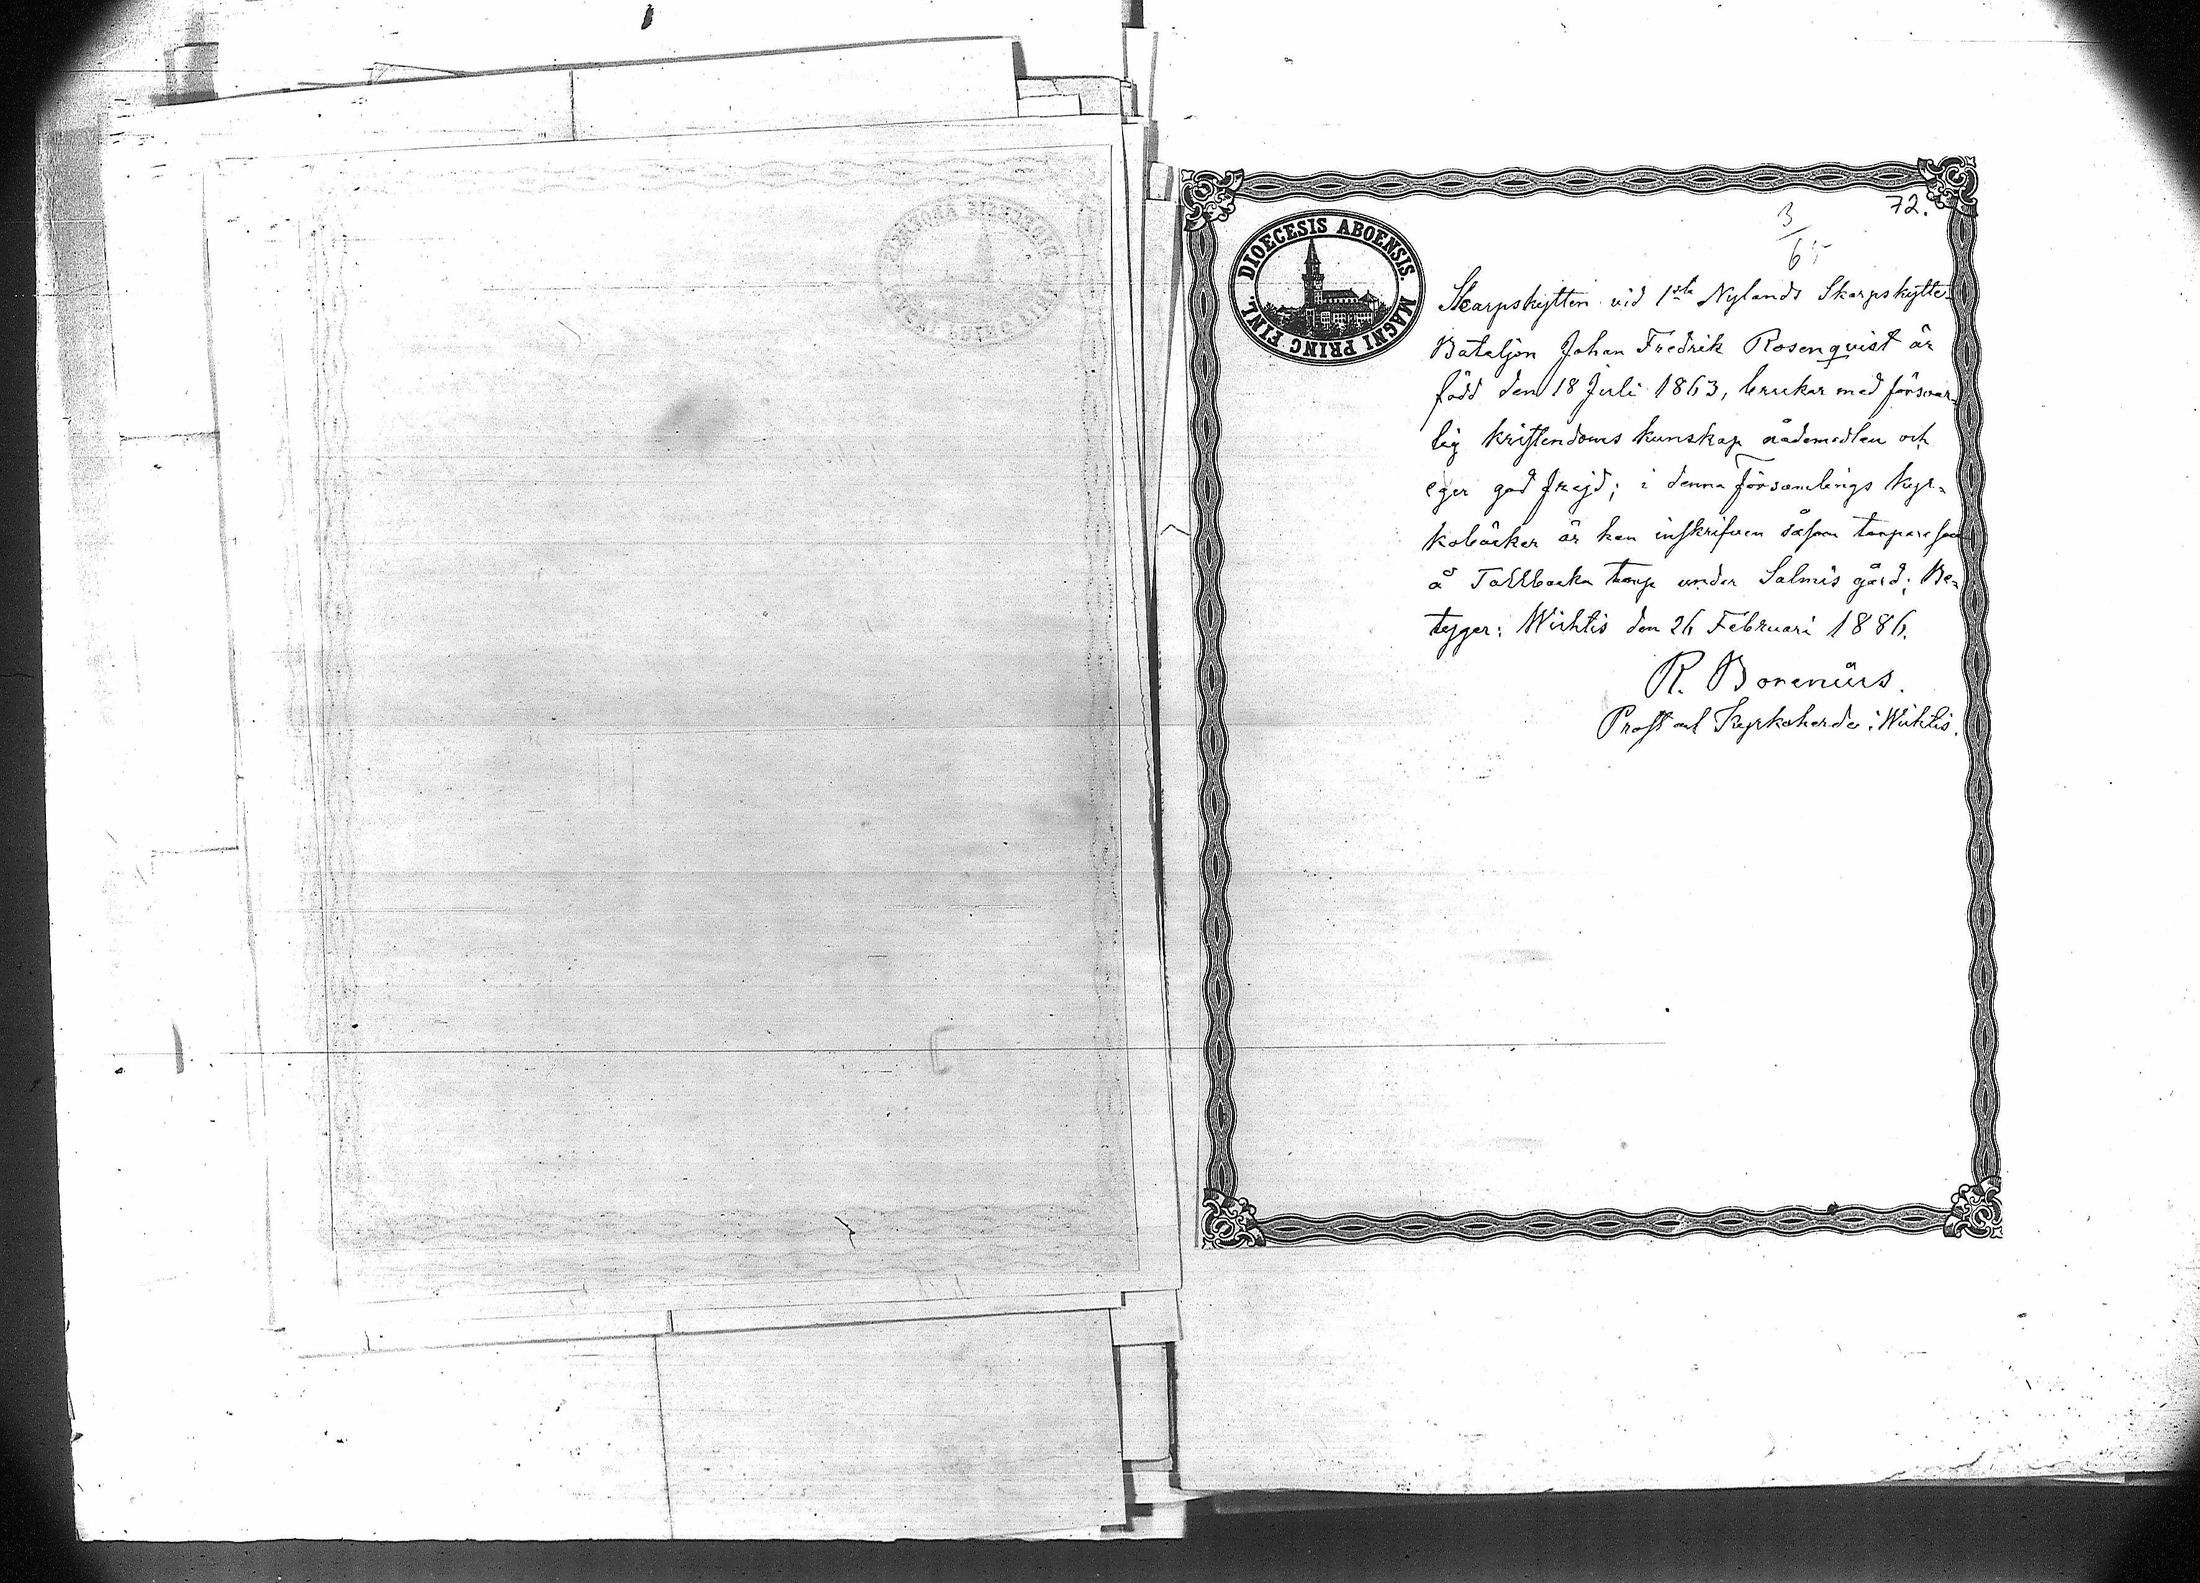 72.
3
65
DIOECESIS ABOENSIS. MAGNI PRINC FINL.
Skarpskytten vid 1sta Nylands Skarpskytte-
Bataljon Johan Fredrik Rosenqvist är
född den 18 Juli 1863, brukar med försvar-
lig kristendoms kunskap nådemedlen och
eger god frejd; i denna församlings kyr-
koböcker är han inskrifven såsom torpareson
å Tallbacka torp under Salmis gård; Be-
tygar: Wichtis den 26 Februari 1886.
R. Borenius.
Prost och Kyrkoherde i Wichtis.